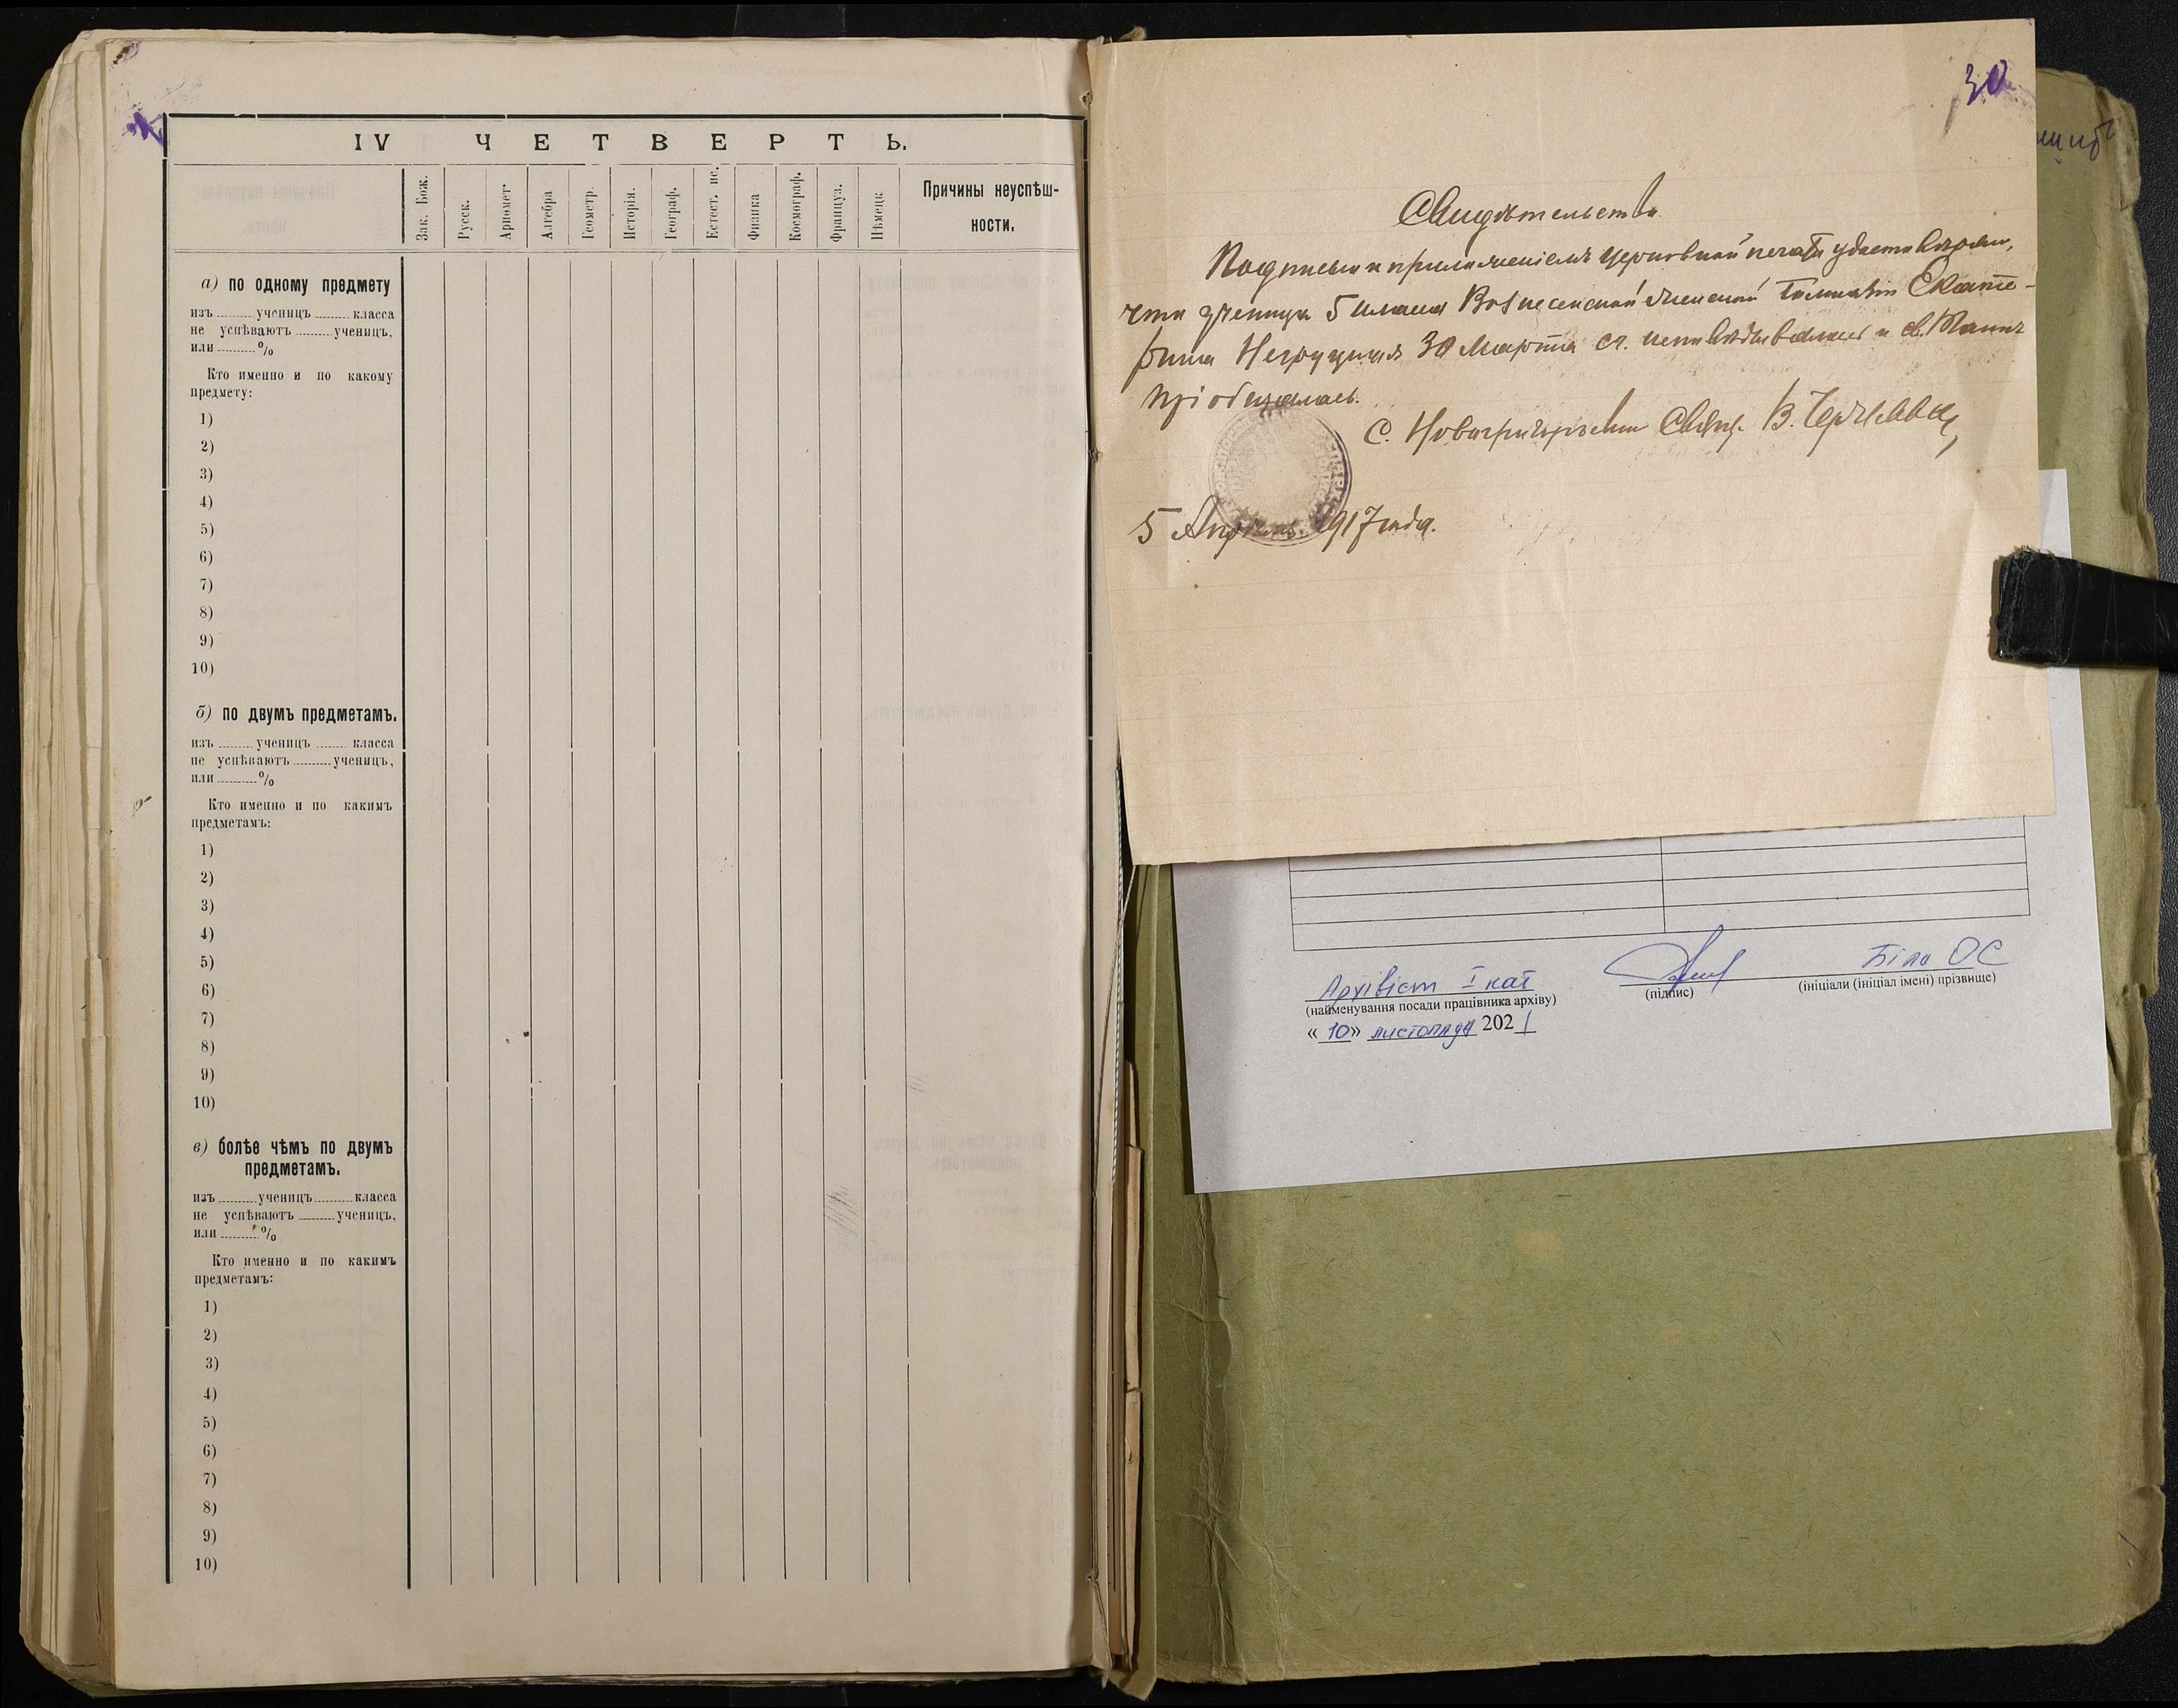 IV ЧЕТВЕРТЬ.
Зак. Бож.
Русск.
Ариѳмет.
Алгебра
Геометр.
Исторія.
Географ.
Естест. ис.
Физика
Космограф.
Француз.
Нѣмецк.
Причины неуспѣш-
ности.
а) по одному предмету
изъ ученицъ класса
не успѣваютъ ученицъ,
или %
Кто именно и по какому
предмету:
1)
2)
3)
4)
5)
6)
7)
8)
9)
10)
б) по двумъ предметамъ.
изъ ученицъ класса
не успѣваютъ ученицъ,
или %
Кто именно и по какимъ
предметамъ:
1)
2)
3)
4)
5)
6)
7)
8)
9)
10)
в) болѣе чѣмъ по двумъ
предметамъ.
изъ ученицъ класса
не успѣваютъ ученицъ,
или %
Кто именно и по какимъ
предметамъ:
1)
2)
3)
4)
5)
6)
7)
8)
9)
10)
30
Свидѣтельство
Подписью и приложеніемъ церковной печати удостовѣряю,
что ученица 5 класса Вознесенской женской Гимназіи Екате-
рина 30 Марта с.г. исповѣдывалась и св. Таинъ
пріобщалась.
С. Новогригорьевки Свящ. В.
5 Апрѣля 1917 года.
Архівіст I кат
Біла ОС
(найменування посади працівника архіву)
(підпис)
(ініціали (ініціал імені) прізвище)
«10» листопада 2021